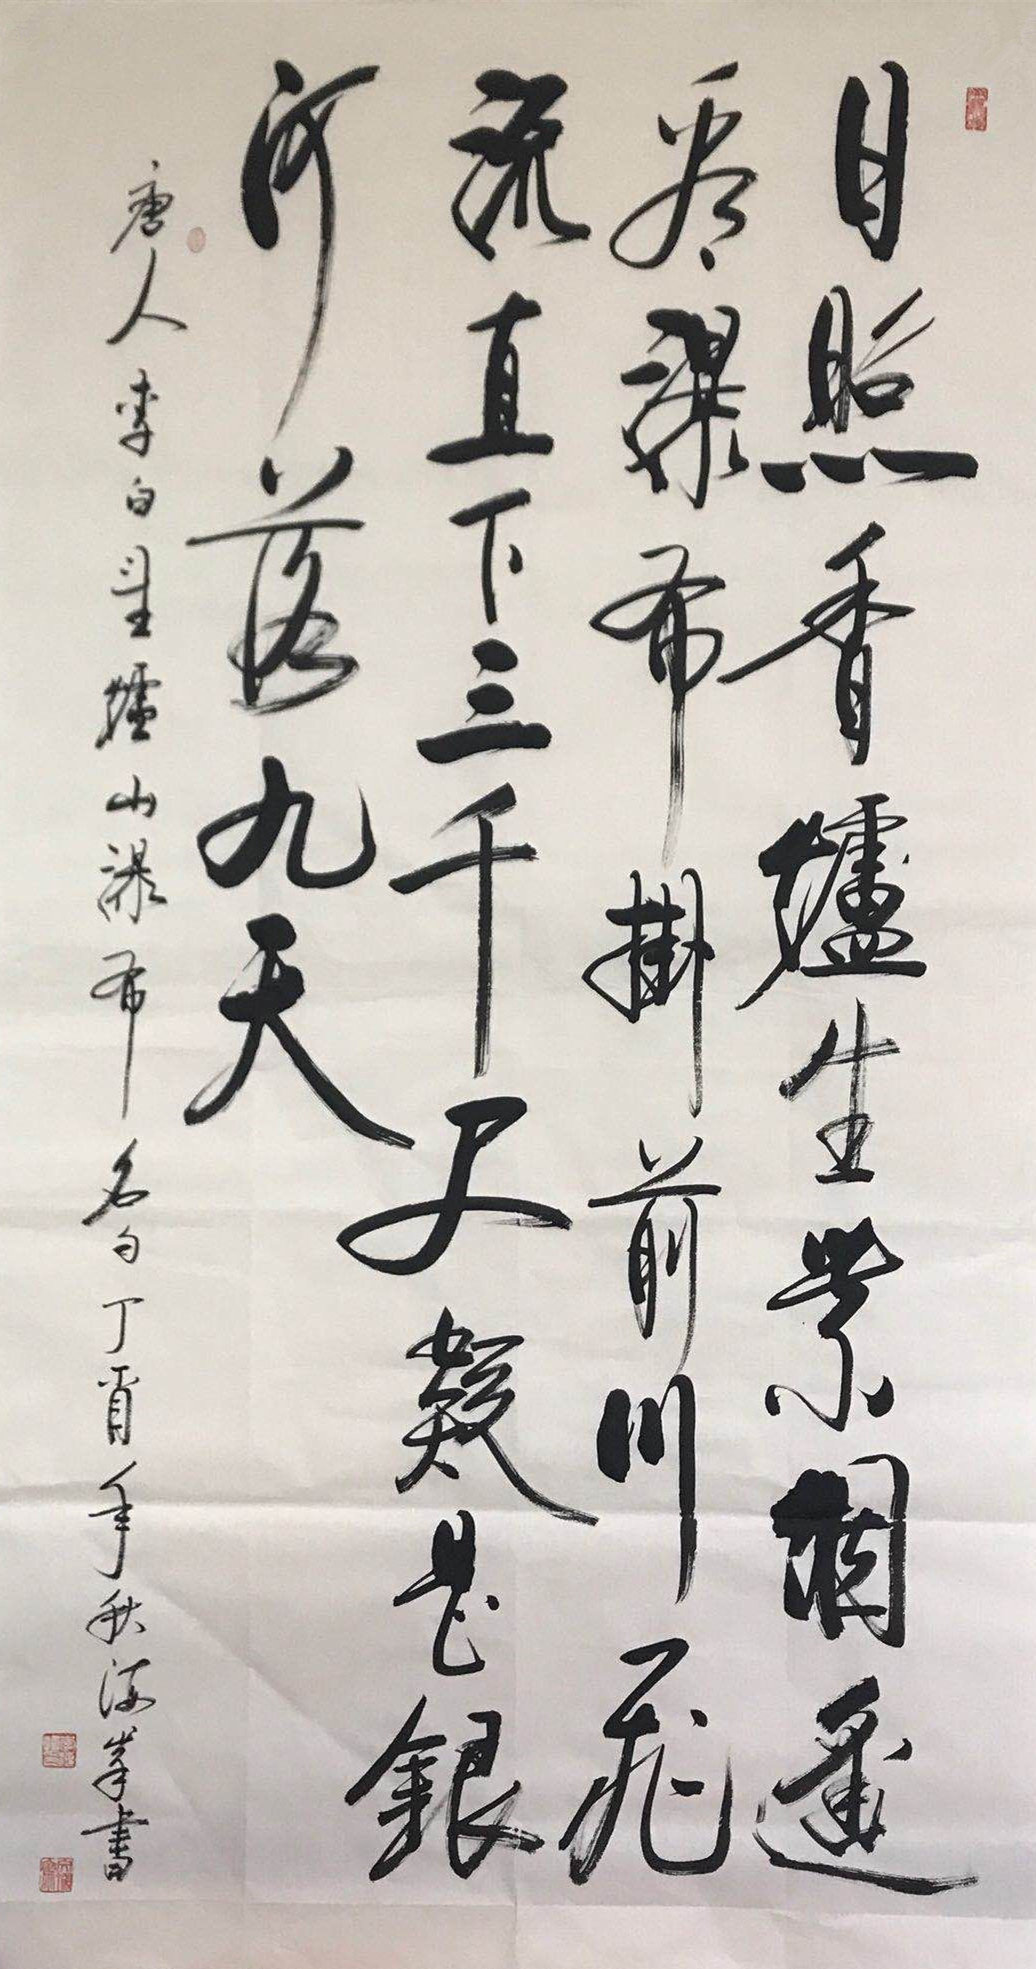 日照香爐生紫烟遥
看瀑布掛前川飛
流直下三千尺疑是銀
河落九天
唐人李白望爐山瀑布名句丁酉年秋海峯書